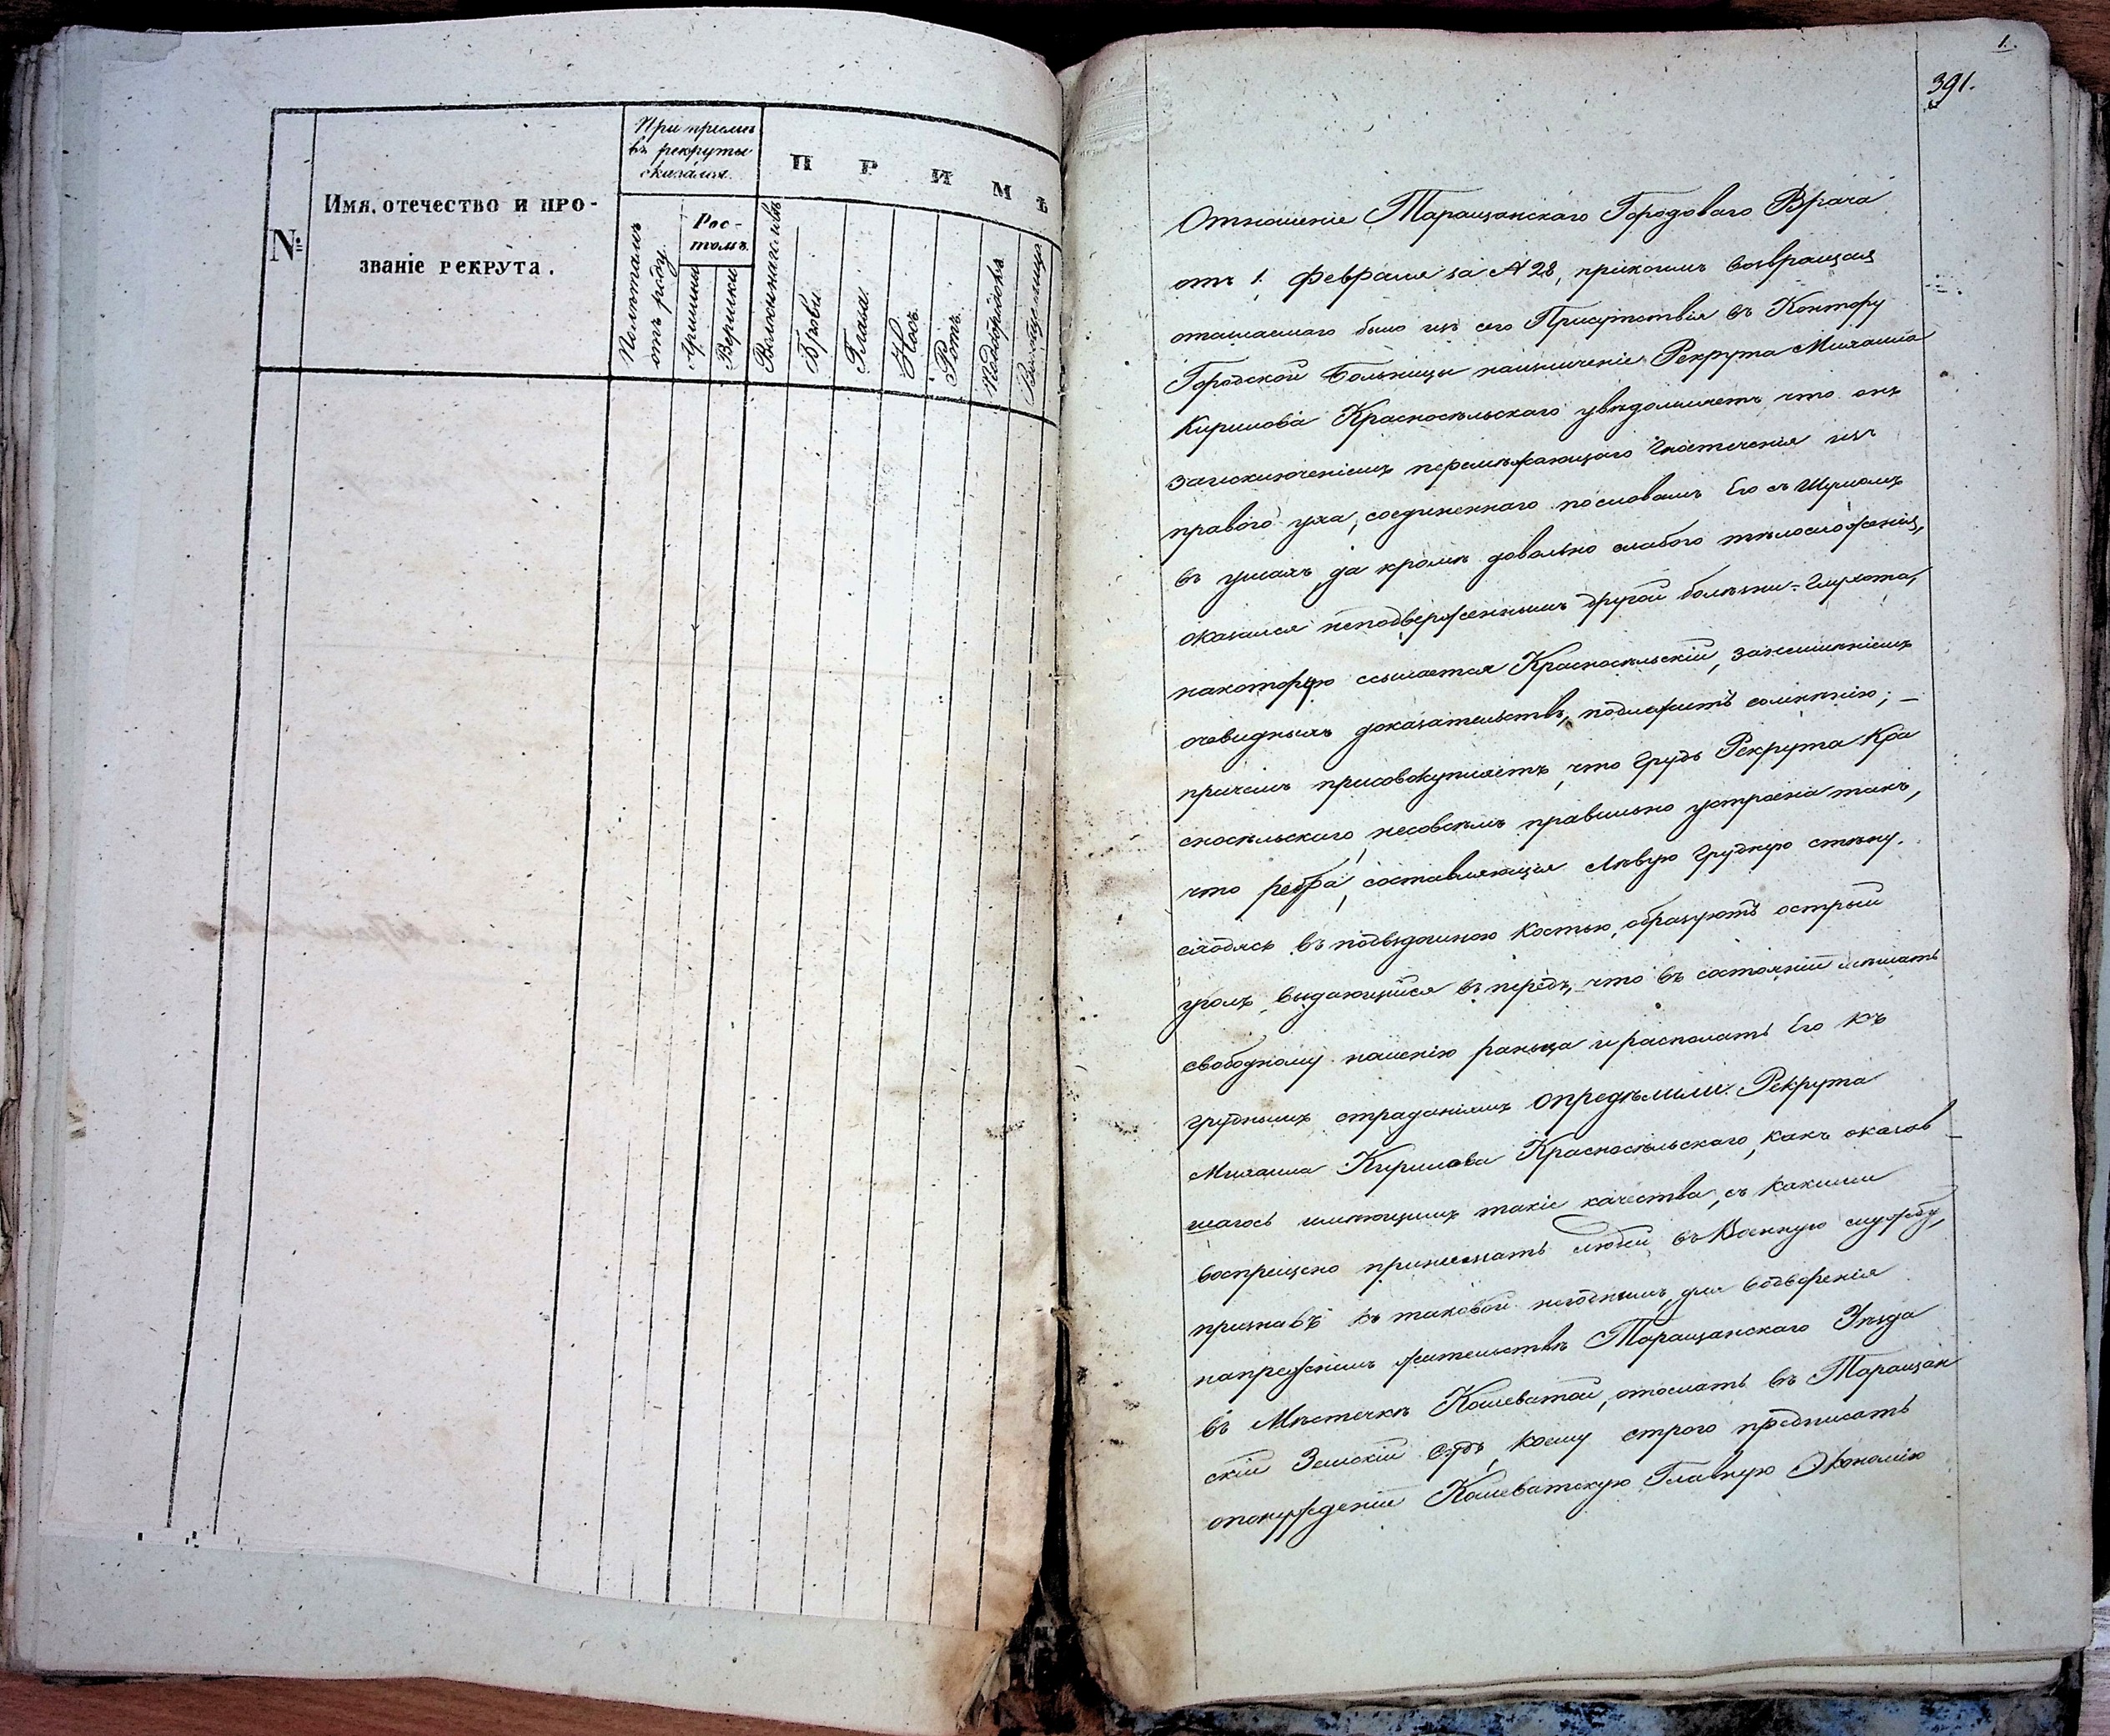 №
Имя, отечество и про-
званіе рекрута.
При пріемѣ
въ рекруты
оказался.
По лѣтамъ
отъ роду
Рос-
томъ.
Аршины
Вершки
П Р И М Ѣ
Брови
Глаза
Носъ
Ротъ
Подбородокъ
1.
391.
Отношеніе Таращанскаго Городоваго Врача
отъ 1. Февраля за № 28, при коемъ возвращая
отосланнаго было изъ сего Присутствія въ Контору
Городской Больницы на излеченіе Рекрута Михаила
Кирилова Красносѣльскаго увѣдомляетъ что онъ
за исключеніемъ перемѣжающаго гноетеченія изъ
праваго уха, соединеннаго по словамъ Его съ шумомъ
въ ушахъ, да кромѣ довольно слабого тѣлосложенія,
оказался неподверженнымъ другой болѣзни – глухота,
на которую ссылается Красносѣльскій, за неимѣніемъ
очевидныхъ доказательствъ, подлежитъ сомнѣнію; –
причемъ присовокупляетъ, что грудь Рекрута Кра
сносѣльскаго, не совсѣмъ правильно устроена такъ,
что ребра, составляющія лѣвую грудную стѣну.
сходясь въ подвздошною костью, образуютъ острый
уголъ, выдающійся въ передъ, что въ состояніи мѣшать
свободному ношенію ранца и располать Его къ
груднымъ страданіямъ Опредѣлили: Рекрута
Михаила Кирилова Красносѣльскаго, какъ оказав –
шагось имѣющимъ такіе качества, съ какими
воспрещено принимать людей въ Военную службу,
признавъ къ таковой негоднымъ, для водворенія
на прежнемъ жительствѣ Таращанскаго Уѣзда
въ Мѣстечкѣ Кошеватой, отослать въ Таращан
скій Земскій Судъ, коему строго предписать
о понужденіи Кошеватскую Главную Экономію